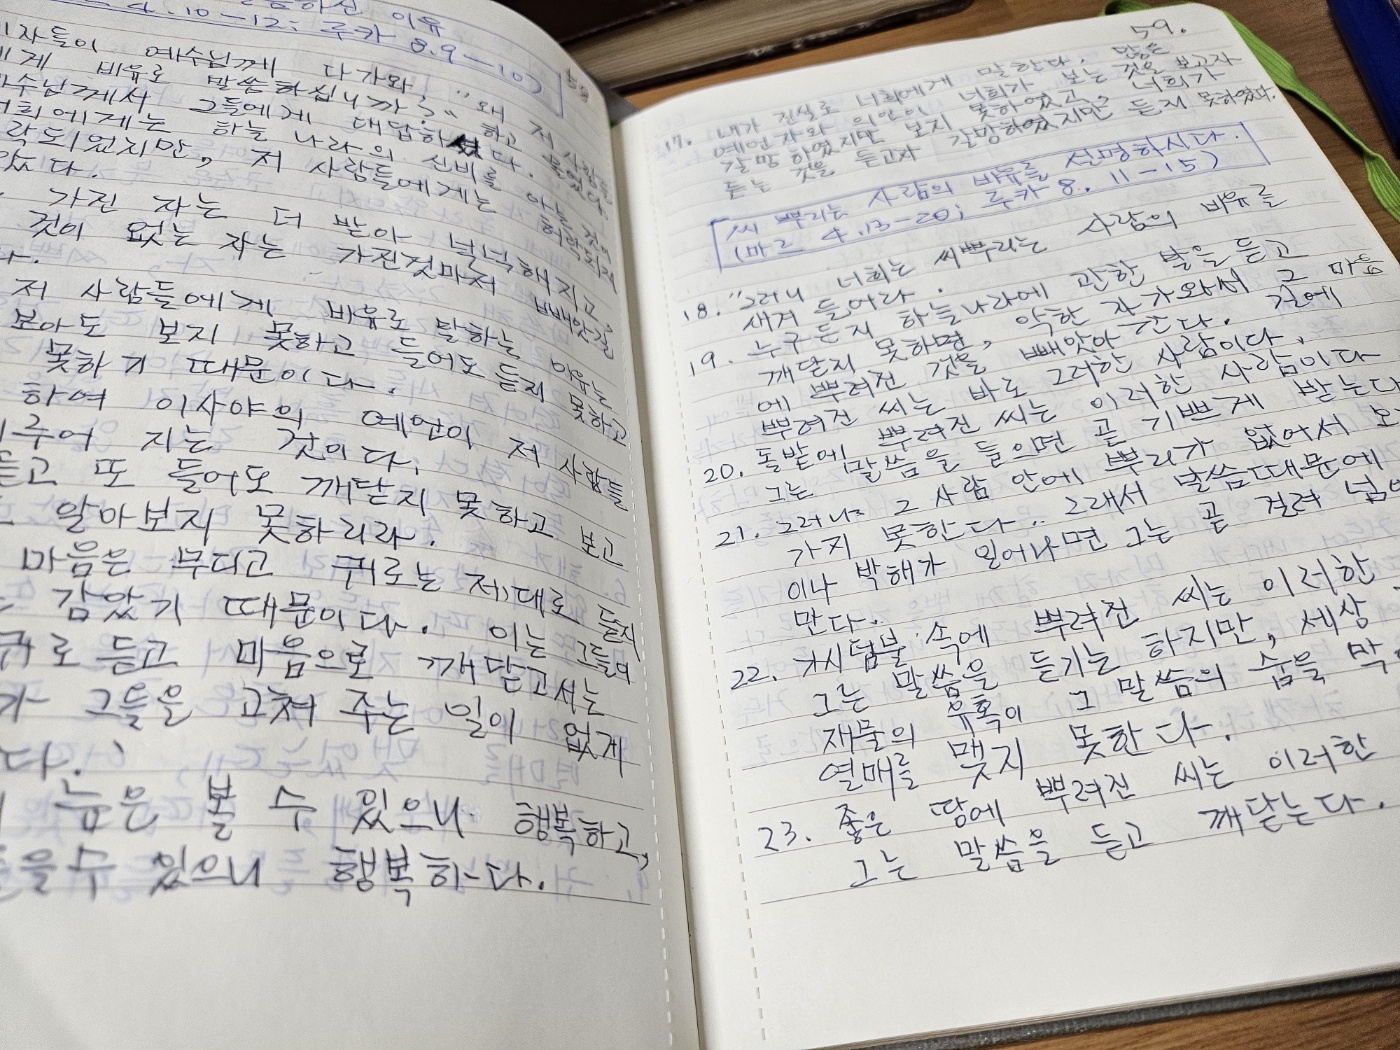 하신 이유
4.10-12; 루카 8.9-10)
58
자들이 예수님께 다가와, "왜 저 사람들
에게 비유로 말씀하십니까?" 하고 물었다.
예수님께서 그들에게 대답하셨다.
너희에게는 하늘 나라의 신비를 아는 것이
허락되었지만, 저 사람들에게는 허락되지
았다.
가진 자는 더 받아 넉넉해지고,
것이 없는 자는 가진것마저 빼앗길
다.
저 사람들에게 비유로 말하는 이유는
보아도 보지 못하고 들어도 듣지 못하고
못하기 때문이다.
하여 이사야의 예언이 저 사람들
이루어 지는 것이다.
듣고 또 들어도 깨닫지 못하고 보고
알아보지 못하리라.
마음은 무디고 귀로는 제대로 듣지
감았기 때문이다. 이는 그들의
귀로 듣고 마음으로 깨닫고서는
가 그들을 고쳐 주는 일이 없게
다.
눈은 볼 수 있으니 행복하고,
들을수 있으니 행복하다.
59.
17. 내가 진실로 너희에게 말한다. 많은
예언자와 의인이 너희가 보는 것을 보고자
갈망하였지만 보지 못하였고, 너희가
듣는 것을 듣고자 갈망하였지만 듣지 못하였다.
씨 뿌리는 사람의 비유를 설명하시다.
(마르 4.13-20; 루카 8.11-15)
18. "그러니 너희는 씨뿌리는 사람의 비유를
새겨 들어라.
19. 누구든지 하늘나라에 관한 말을 듣고
깨닫지 못하면, 악한 자가와서 그 마음
에 뿌려진 것을 빼앗아 간다. 길에
뿌려진 씨는 바로 그러한 사람이다.
20. 돌밭에 뿌려진 씨는 이러한 사람이다
그는 말씀을 들으면 곧 기쁘게 받는다
21. 그러나 그 사람 안에 뿌리가 없어서 오
가지 못한다.. 그래서 말씀때문에
이나 박해가 일어나면 그는 곧 걸려 넘어
만다.
22. 가시덤불 속에 뿌려진 씨는 이러한
그는 말씀을 듣기는 하지만, 세상
재물의 유혹이 그 말씀의 숨을 막
열매를 맺지 못한다.
23. 좋은 땅에 뿌려진 씨는 이러한
그는 말씀을 듣고 깨닫는다.